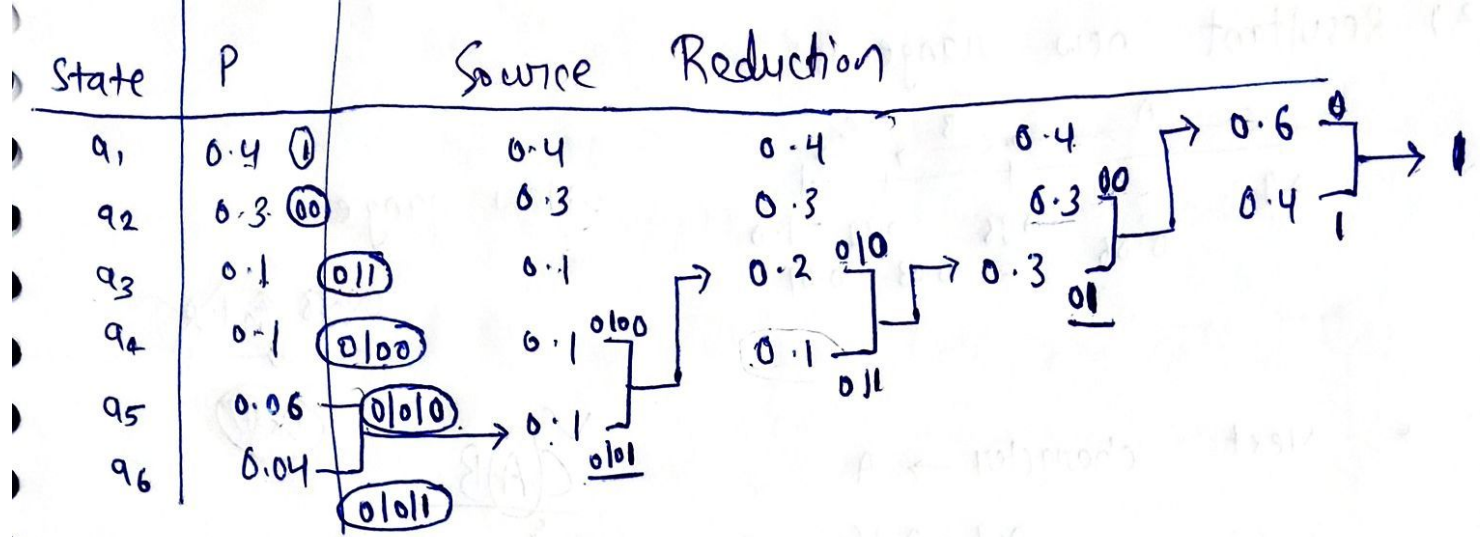 State P Source Reduction
a₁ 0.4 1 0.4 0.4 0.4 0.6 0 1
a₂ 0.3 00 0.3 0.3 0.3 00 0.4 1
a₃ 0.1 011 0.1 0.2 010 0.3 01
a₄ 0.1 0100 0.1 0100 0.1 011
a₅ 0.06 01010 0.1 0101
a₆ 0.04 01011